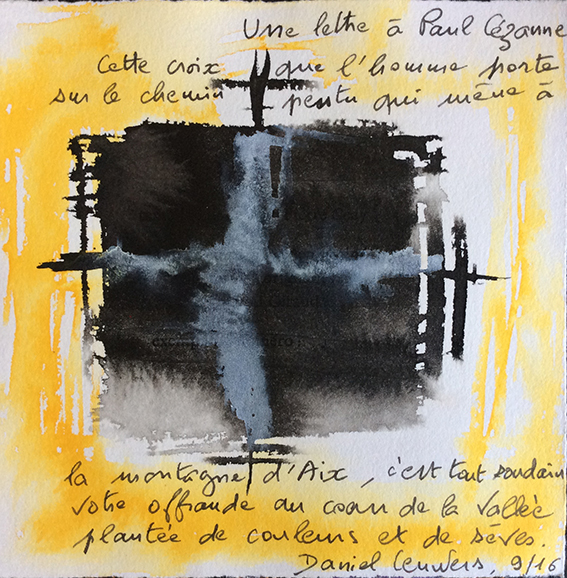 Une lettre à Paul Cézanne
Cette croix que l'homme porte
sur le chemin pentu qui mène à
la montagne d'Aix, c'est tout soudain
votre offrande au cœur de la vallée
plantée de couleurs et de sèves.
Daniel Leuwers, 9/16